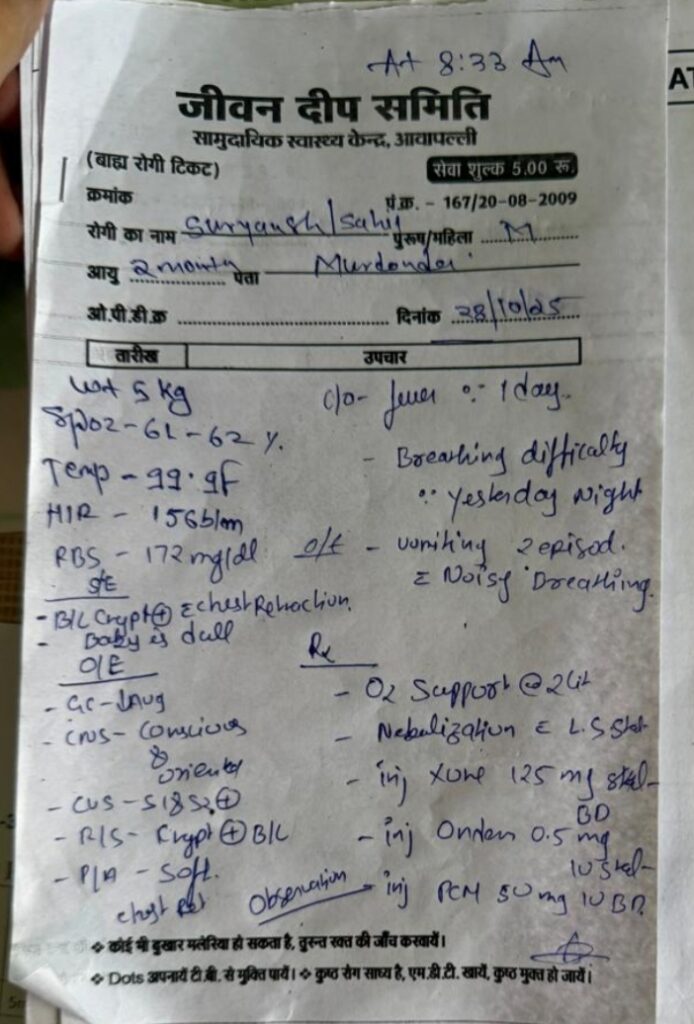 At 8:33 Am
AT
जीवन दीप समिति
सामुदायिक स्वास्थ्य केन्द्र, आवापल्ली
(बाह्य रोगी टिकट) सेवा शुल्क 5.00 रू.
क्रमांक पं.क्र. - 167/20-08-2009
रोगी का नाम Suryansh/Sahil पुरूष/महिला M
आयु 2 month पता Murdonda
ओ.पी.डी.क्र दिनांक 28/10/25
तारीख उपचार
Wt 5 kg c/o- fever ∵ 1 day.
SpO2 - 61 - 62 %.
- Breathing difficulty
Temp - 99.9f ∵ Yesterday Night
H/R - 156b/m
RBS - 172 mg/dl O/E - vomiting 2 episod.
S/E c̄ Noisy Breathing.
- B/L Crypt⊕ c̄ chest Retraction.
- Baby is dull
O/E Rx
- GC - - O2 Support @ 2Lit
- CNS - Conscious - Nebulization c̄ L.S Stat
&
oriented - inj XONE 125 mg stat-
- CVS - S1&S2⊕ BD
- R/S - Crypt⊕ B/L - inj Onden 0.5 mg
- P/A - Soft. IV Stat-
chest Ret Observation - inj PCM 50 mg IV BD.
❖ कोई भी बुखार मलेरिया हो सकता है, तुरन्त रक्त की जाँच करवायें।
❖ Dots अपनायें टी.बी. से मुक्ति पायें। ❖ कुष्ठ रोग साध्य है, एम.डी.टी. खायें, कुष्ठ मुक्त हो जायें।